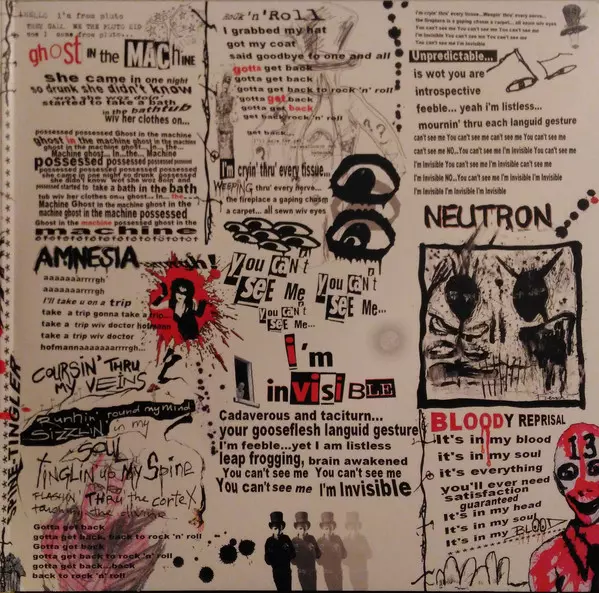 i'm from pluto
THEY CALL ME THE PLUTO KID
ghOST IN the MACHINE
she came in one night
so drunk she didn't know
she woz doin'
started to take a bath
in the bathtub
wiv her clothes on...
possessed possessed Ghost in the machine
ghost in the machine ghost in the machine
ghost in the machine ghost in... the...
Machine ghost... in...the... Machine
possessed possessed possessed possessed
possessed possessed possessed possessed
she came in one night so drunk possessed
she didn't know wot she woz doin' and
possessed started to take a bath in the bath
tub wiv her clothes on... in... the...
Machine Ghost in the machine ghost in the
machine ghost in the machine possessed
Ghost in the machine possessed ghost in the
machine
AMNESIA
aaaaaarrrrgh
aaaaaarrrrgh
I'll take u on a trip
take a trip gonna take a trip...
take a trip wiv doctor hofmann
take a trip wiv doctor
hofmannaaaaaarrrrgh...
COURSIN' THRU
MY VEINS
Runnin' round my mind
SIZZLIN' in my
SOUL
TINGLIN' up MY SPINE
FLASHIN' THRU the corteX
Gotta get back
gotta get back, back to rock 'n' roll
Gotta get back
gotta get back to rock 'n' roll
gotta get back...back
back to rock 'n' roll
SPINETINGLER
ROCK 'n' Roll
I grabbed my hat
got my coat
said goodbye to one and all
gotta get back
gotta get back
gotta get back to rock 'n' roll
gotta get back
gotta get back
get back rock 'n' roll
get back...
I'm cryin' thru' every tissue...
WEEPING thru' every nerve...
the fireplace a gaping chasm
a carpet... all sewn wiv eyes
You CAN't
SEE Me
You CAN't
SEE Me...
You CAN't
SEE Me...
i'm
inVISiBLE
Cadaverous and taciturn...
your gooseflesh languid gesture
I'm feeble...yet I am listless
leap frogging, brain awakened
You can't see me You can't see me
You can't see me I'm Invisible
I'm cryin' thru' every tissue... Weepin' thru' every nerve...
the fireplace a gaping chasm a carpet... all sewn wiv eyes
You can't see me You can't see me You can't see me
I'm Invisible You can't see me You can't see me
You can't see me I'm Invisible
Unpredictable...
is wot you are
introspective
feeble... yeah i'm listless...
mournin' thru each languid gesture
can't see me You can't see me You can't see me
can't see me NO...You can't see me I'm Invisible You can't see me
I'm Invisible You can't see me I'm Invisible can't see me
I'm Invisible NO...You can't see me I'm Invisible
I'm Invisible I'm Invisible I'm Invisible
NEUTRON
BLOODY REPRISAL
It's in my blood
it's in my soul
it's everything
you'll ever need
satisfaction
guaranteed
It's in my head
It's in my soul
It's in my BLOOD
13